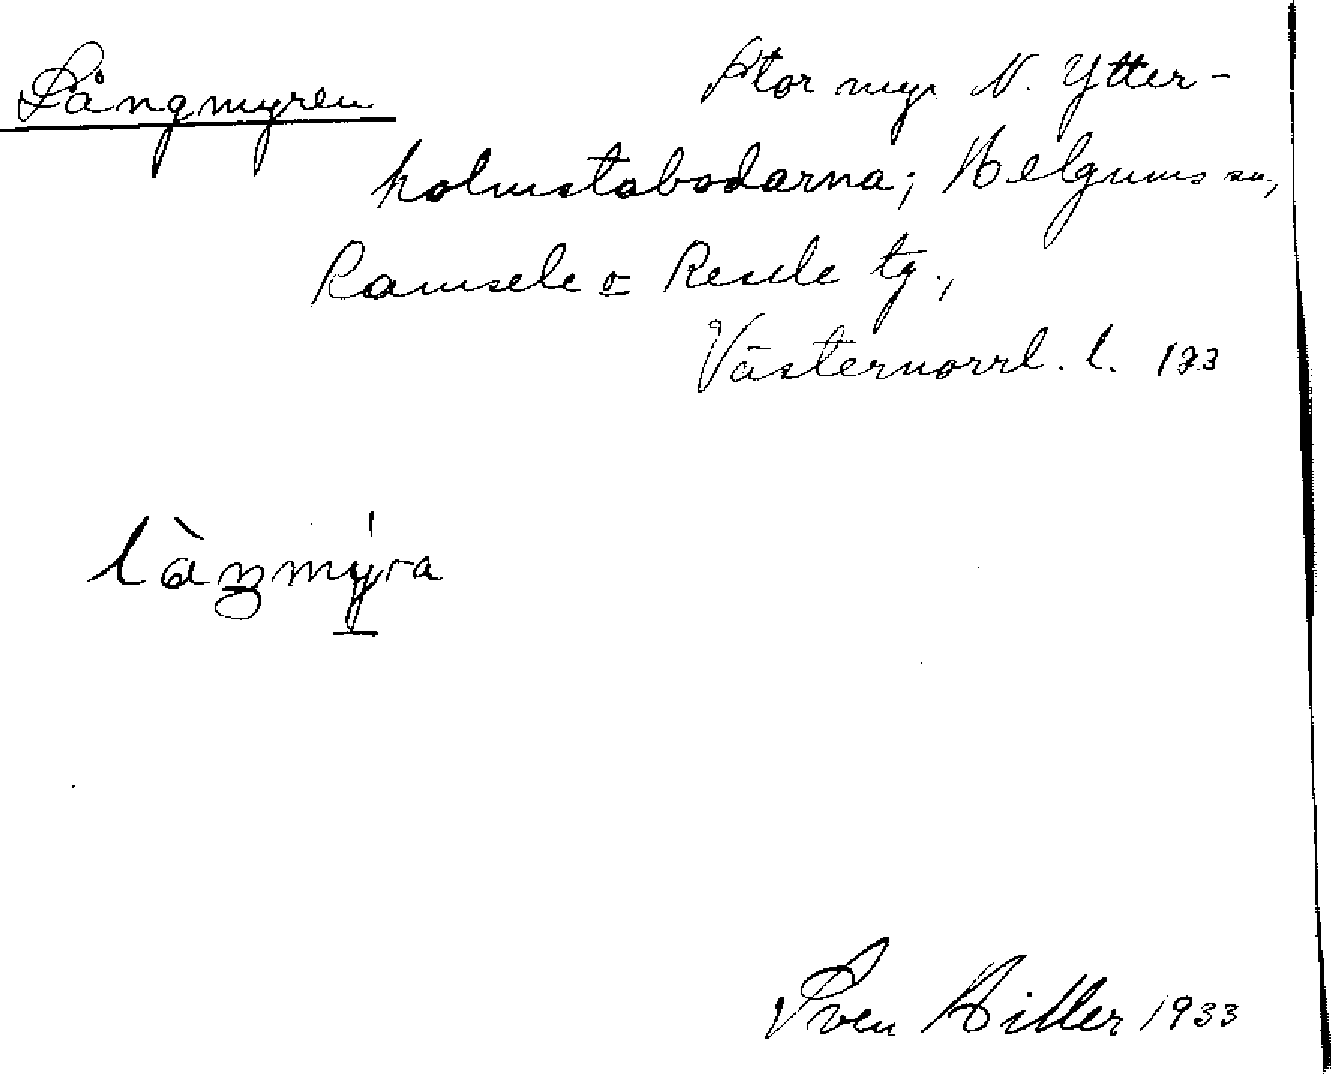 Långmyren
Stor myr N. Ytter-
holmstabodarna; Helgums sn,
Ramsele o Resele tg.,
Västernorrl. l. 193
Sven Hitler 1933